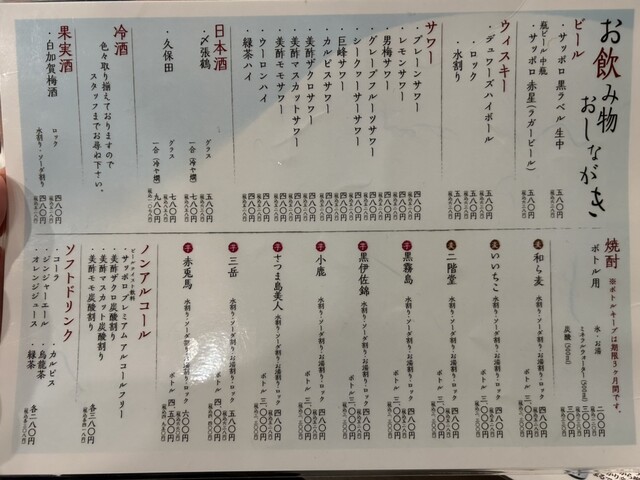 お飲み物 おしながき
ビール
・サッポロ黒ラベル 生中 五八〇円
瓶ビール中瓶
・サッポロ赤星(ラガービール) 五八〇円
ウィスキー
・デュワーズハイボール 五八〇円
・ロック 五八〇円
・水割り 五八〇円
サワー
・プレーンサワー 四八〇円
・レモンサワー 四八〇円
・男梅サワー 四八〇円
・グレープフルーツサワー 四八〇円
・シークヮーサーサワー 四八〇円
・巨峰サワー 四八〇円
・カルピスサワー 四八〇円
・美酢ザクロサワー 四八〇円
・美酢マスカットサワー 四八〇円
・美酢モモサワー 四八〇円
・ウーロンハイ 四八〇円
・緑茶ハイ 四八〇円
日本酒
・〆張鶴 グラス 五八〇円
一合(冷や・燗)
・久保田 グラス 七八〇円
一合(冷や・燗) 九八〇円
冷酒
色々取り揃えておりますので
スタッフまでお尋ね下さい。
果実酒
・白加賀梅酒 ロック 四八〇円
水割り・ソーダ割り 四八〇円
焼酎 ※ボトルキープは期限3ヶ月間です。
ボトル用 氷・お湯 二〇〇円
ミネラルウォーター(500ml) 三〇〇円
炭酸(500ml) 三〇〇円
麦 和ら麦 水割り・ソーダ割り・お湯割り・ロック 四八〇円
ボトル 三、〇〇〇円
麦 いいちこ 水割り・ソーダ割り・お湯割り・ロック 四八〇円
ボトル 三、〇〇〇円
麦 二階堂 水割り・ソーダ割り・お湯割り・ロック 四八〇円
ボトル 三、〇〇〇円
芋 黒霧島 水割り・ソーダ割り・お湯割り・ロック 四八〇円
ボトル 三、〇〇〇円
芋 黒伊佐錦 水割り・ソーダ割り・お湯割り・ロック 四八〇円
ボトル 三、〇〇〇円
芋 小鹿 水割り・ソーダ割り・お湯割り・ロック 四八〇円
ボトル 三、〇〇〇円
芋 さつま島美人 水割り・ソーダ割り・お湯割り・ロック 四八〇円
ボトル 三、〇〇〇円
芋 三岳 水割り・ソーダ割り・お湯割り・ロック 五八〇円
ボトル 四、〇〇〇円
芋 赤兎馬 水割り・ソーダ割り・お湯割り・ロック 六〇〇円
ボトル 四、五〇〇円
ノンアルコール
ビールテイスト飲料
・サッポロプレミアムアルコールフリー
・美酢ザクロ炭酸割り
・美酢マスカット炭酸割り
・美酢モモ炭酸割り 各三八〇円
ソフトドリンク
・コーラ ・カルピス
・ジンジャーエール ・烏龍茶
・オレンジジュース ・緑茶 各二八〇円